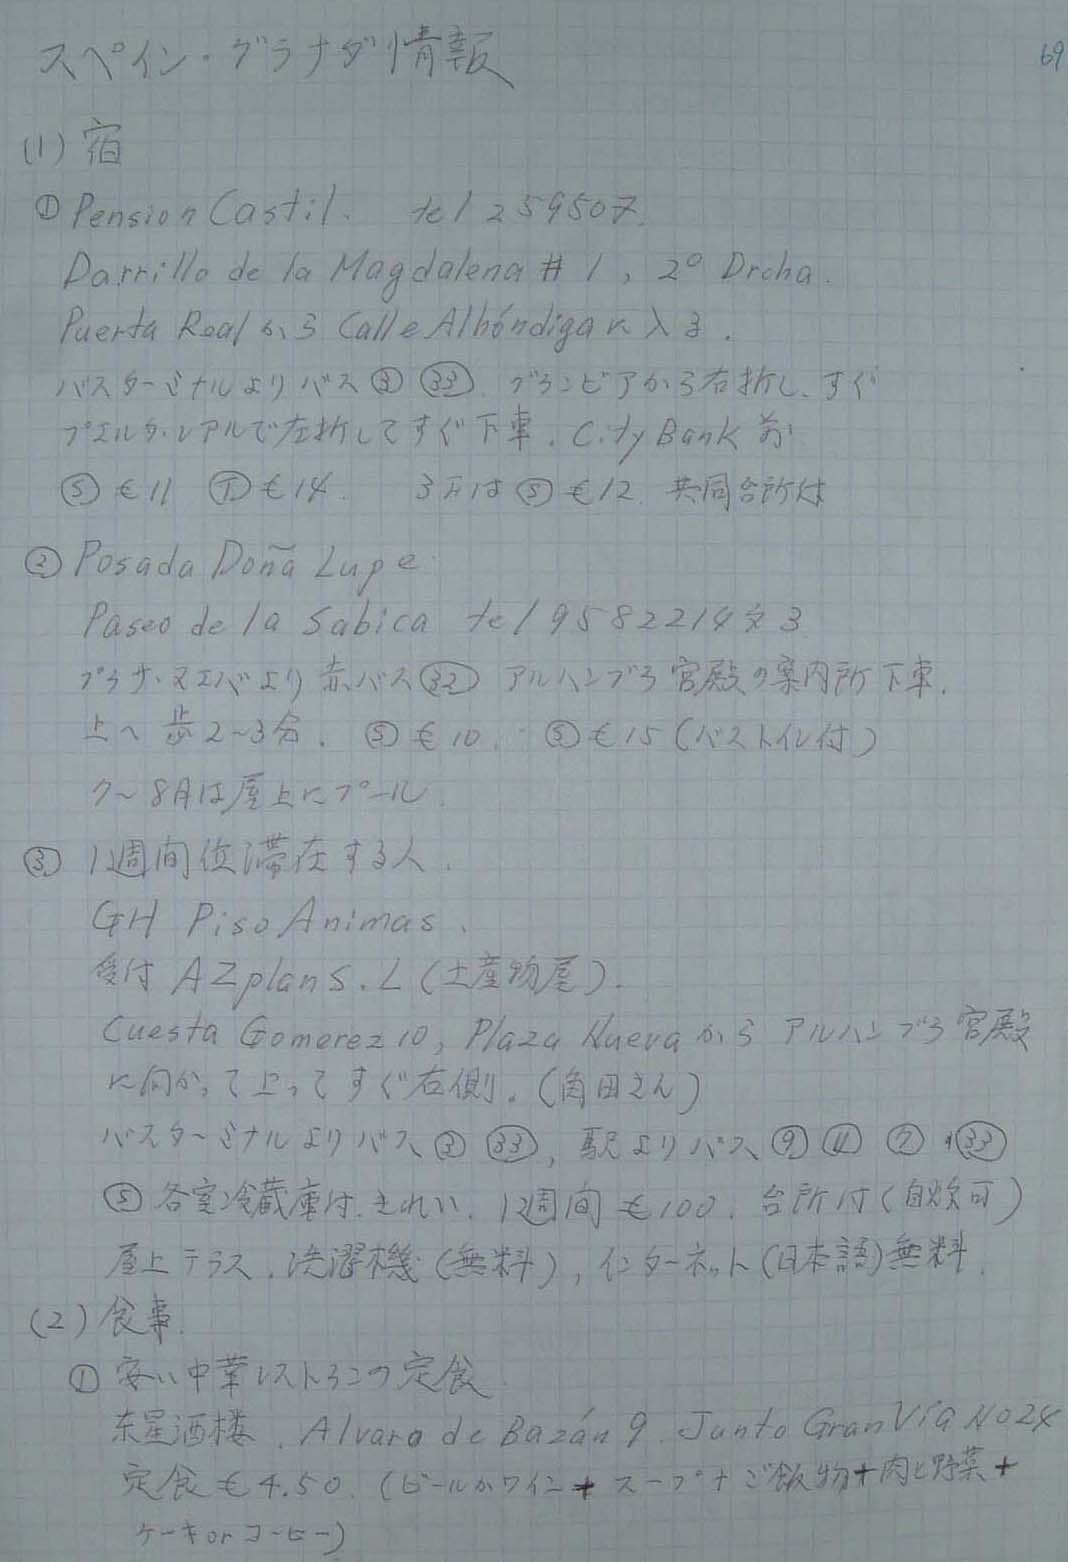 スペイン・グラナダ情報
69
(1) 宿
① Pension Castil. tel 259507.
Darrillo de la Magdalena # 1, 2º Drcha.
Puerta Real から Calle Alhóndiga に入る.
バスターミナルより バス ③ ㉝. グランビアから右折し、すぐ
プエルタ・レアルで左折してすぐ下車. City Bank 前
Ⓢ €11 Ⓣ €14. 3月は Ⓢ €12. 共同台所付
② Posada Doña Lupe
Paseo de la Sabica tel 9582214 3
プラザ・ヌエバより 赤バス ㉜ アルハンブラ宮殿の案内所下車.
上へ 歩2~3分. Ⓢ €10. Ⓢ €15 (バストイレ付)
7~8月は屋上にプール.
③ 1週間位滞在する人.
GH Piso Animas.
受付 AZplan S.L (土産物屋).
Cuesta Gomerez 10, Plaza Nueva から アルハンブラ宮殿
に向かって上ってすぐ右側. (角田さん)
バスターミナルよりバス ③ ㉝, 駅よりバス ⑨ ⑪ ⑦ ㉝
Ⓢ 各室冷蔵庫付. きれい. 1週間 €100. 台所付 (自炊可)
屋上テラス. 洗濯機 (無料), インターネット (日本語) 無料.
(2) 食事.
① 安い中華レストランの定食
东星酒楼. Alvaro de Bazán 9. Junto Gran Vía No 24
定食 €4.50. (ビールかワイン + スープ + ご飯物 + 肉と野菜 +
ケーキ or コーヒー)